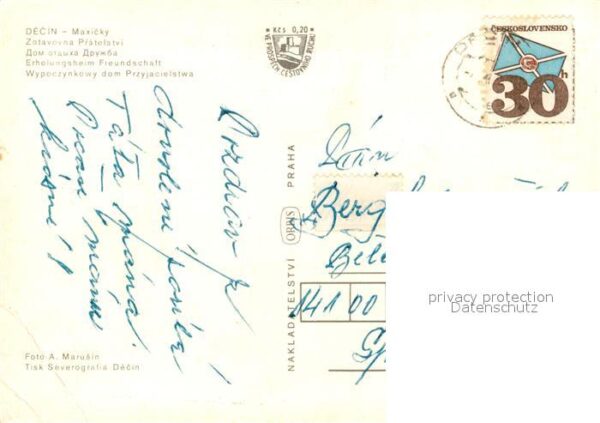 DĚČÍN – Maxičky
Zotavovna Přátelství
Дом отдыха Дружба
Erholungsheim Freundschaft
Wypoczynkowy dom Przyjacielstwa
Kčs 0,20
VE PROSPĚCH CESTOVNÍHO RUCHU
ČESKOSLOVENSKO
30h
Pozdrav z
dovolené posílá
Táta máma
Počasí máme
krásné!
NAKLADATELSTVÍ ORBIS PRAHA
Berg
141 00
privacy protection
Datenschutz
Foto A. Marušin
Tisk Severografia Děčín